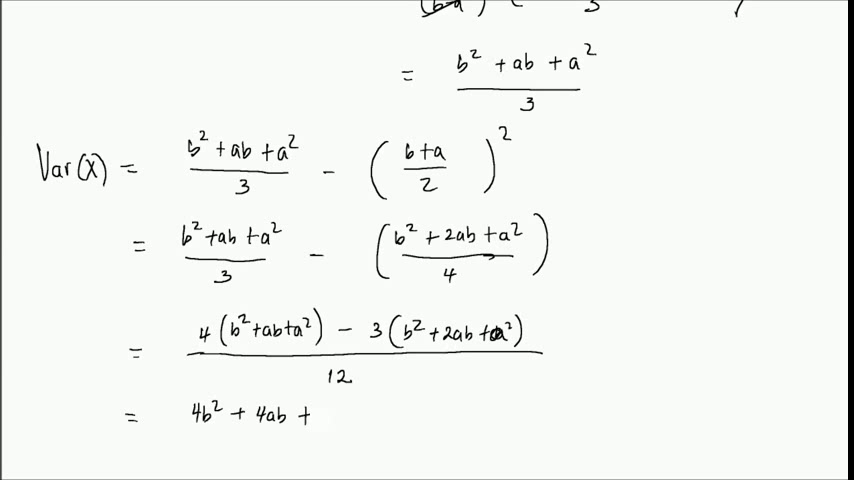 = b² + ab + a² / 3
Var(X) = b² + ab + a² / 3 - ( b+a / 2 )²
= b² + ab + a² / 3 - ( b² + 2ab + a² / 4 )
= 4(b² + ab + a²) - 3(b² + 2ab + a²) / 12
= 4b² + 4ab +